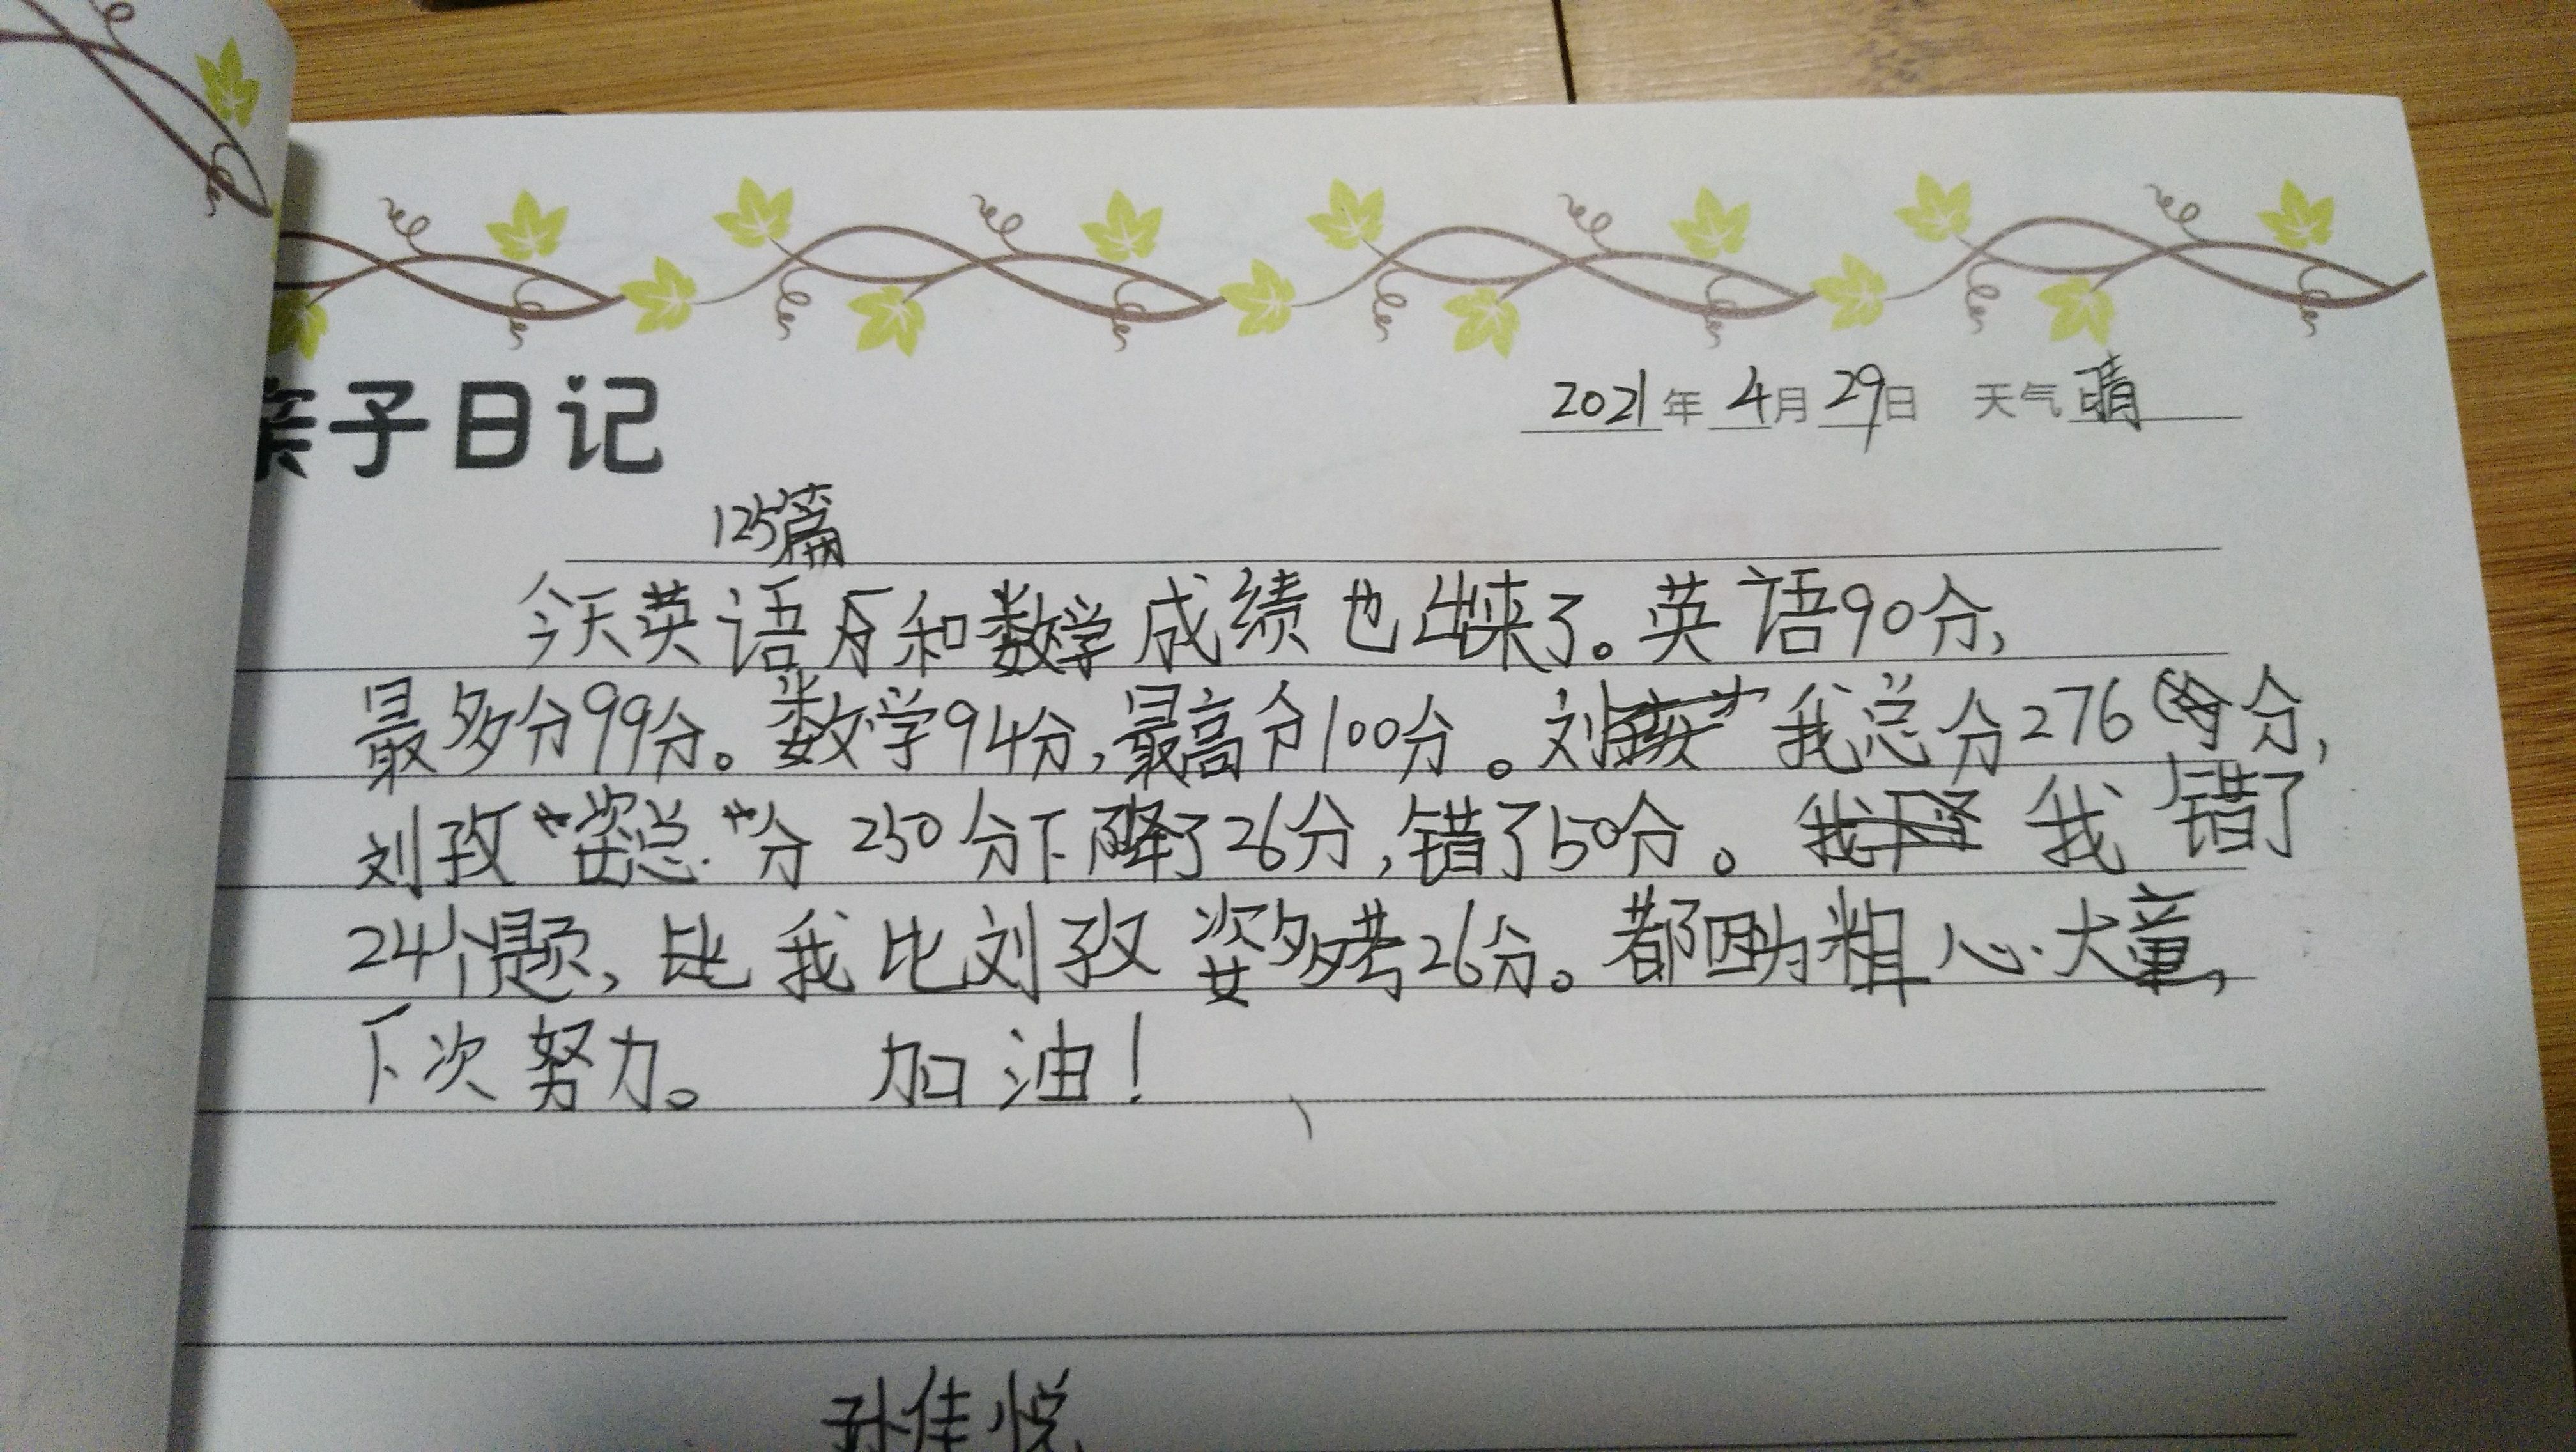 亲子日记
2021年4月29日 天气晴
125篇
今天英语和数学成绩也出来了。英语90分,
最多分99分。数学94分,最高分100分。刘 我总分276分,
刘孜姿总分250分下降了26分,错了50分。我 我错了
24个题,比我比刘孜姿多考26分。都因为粗心大意,
下次努力。 加油!
孙佳悦